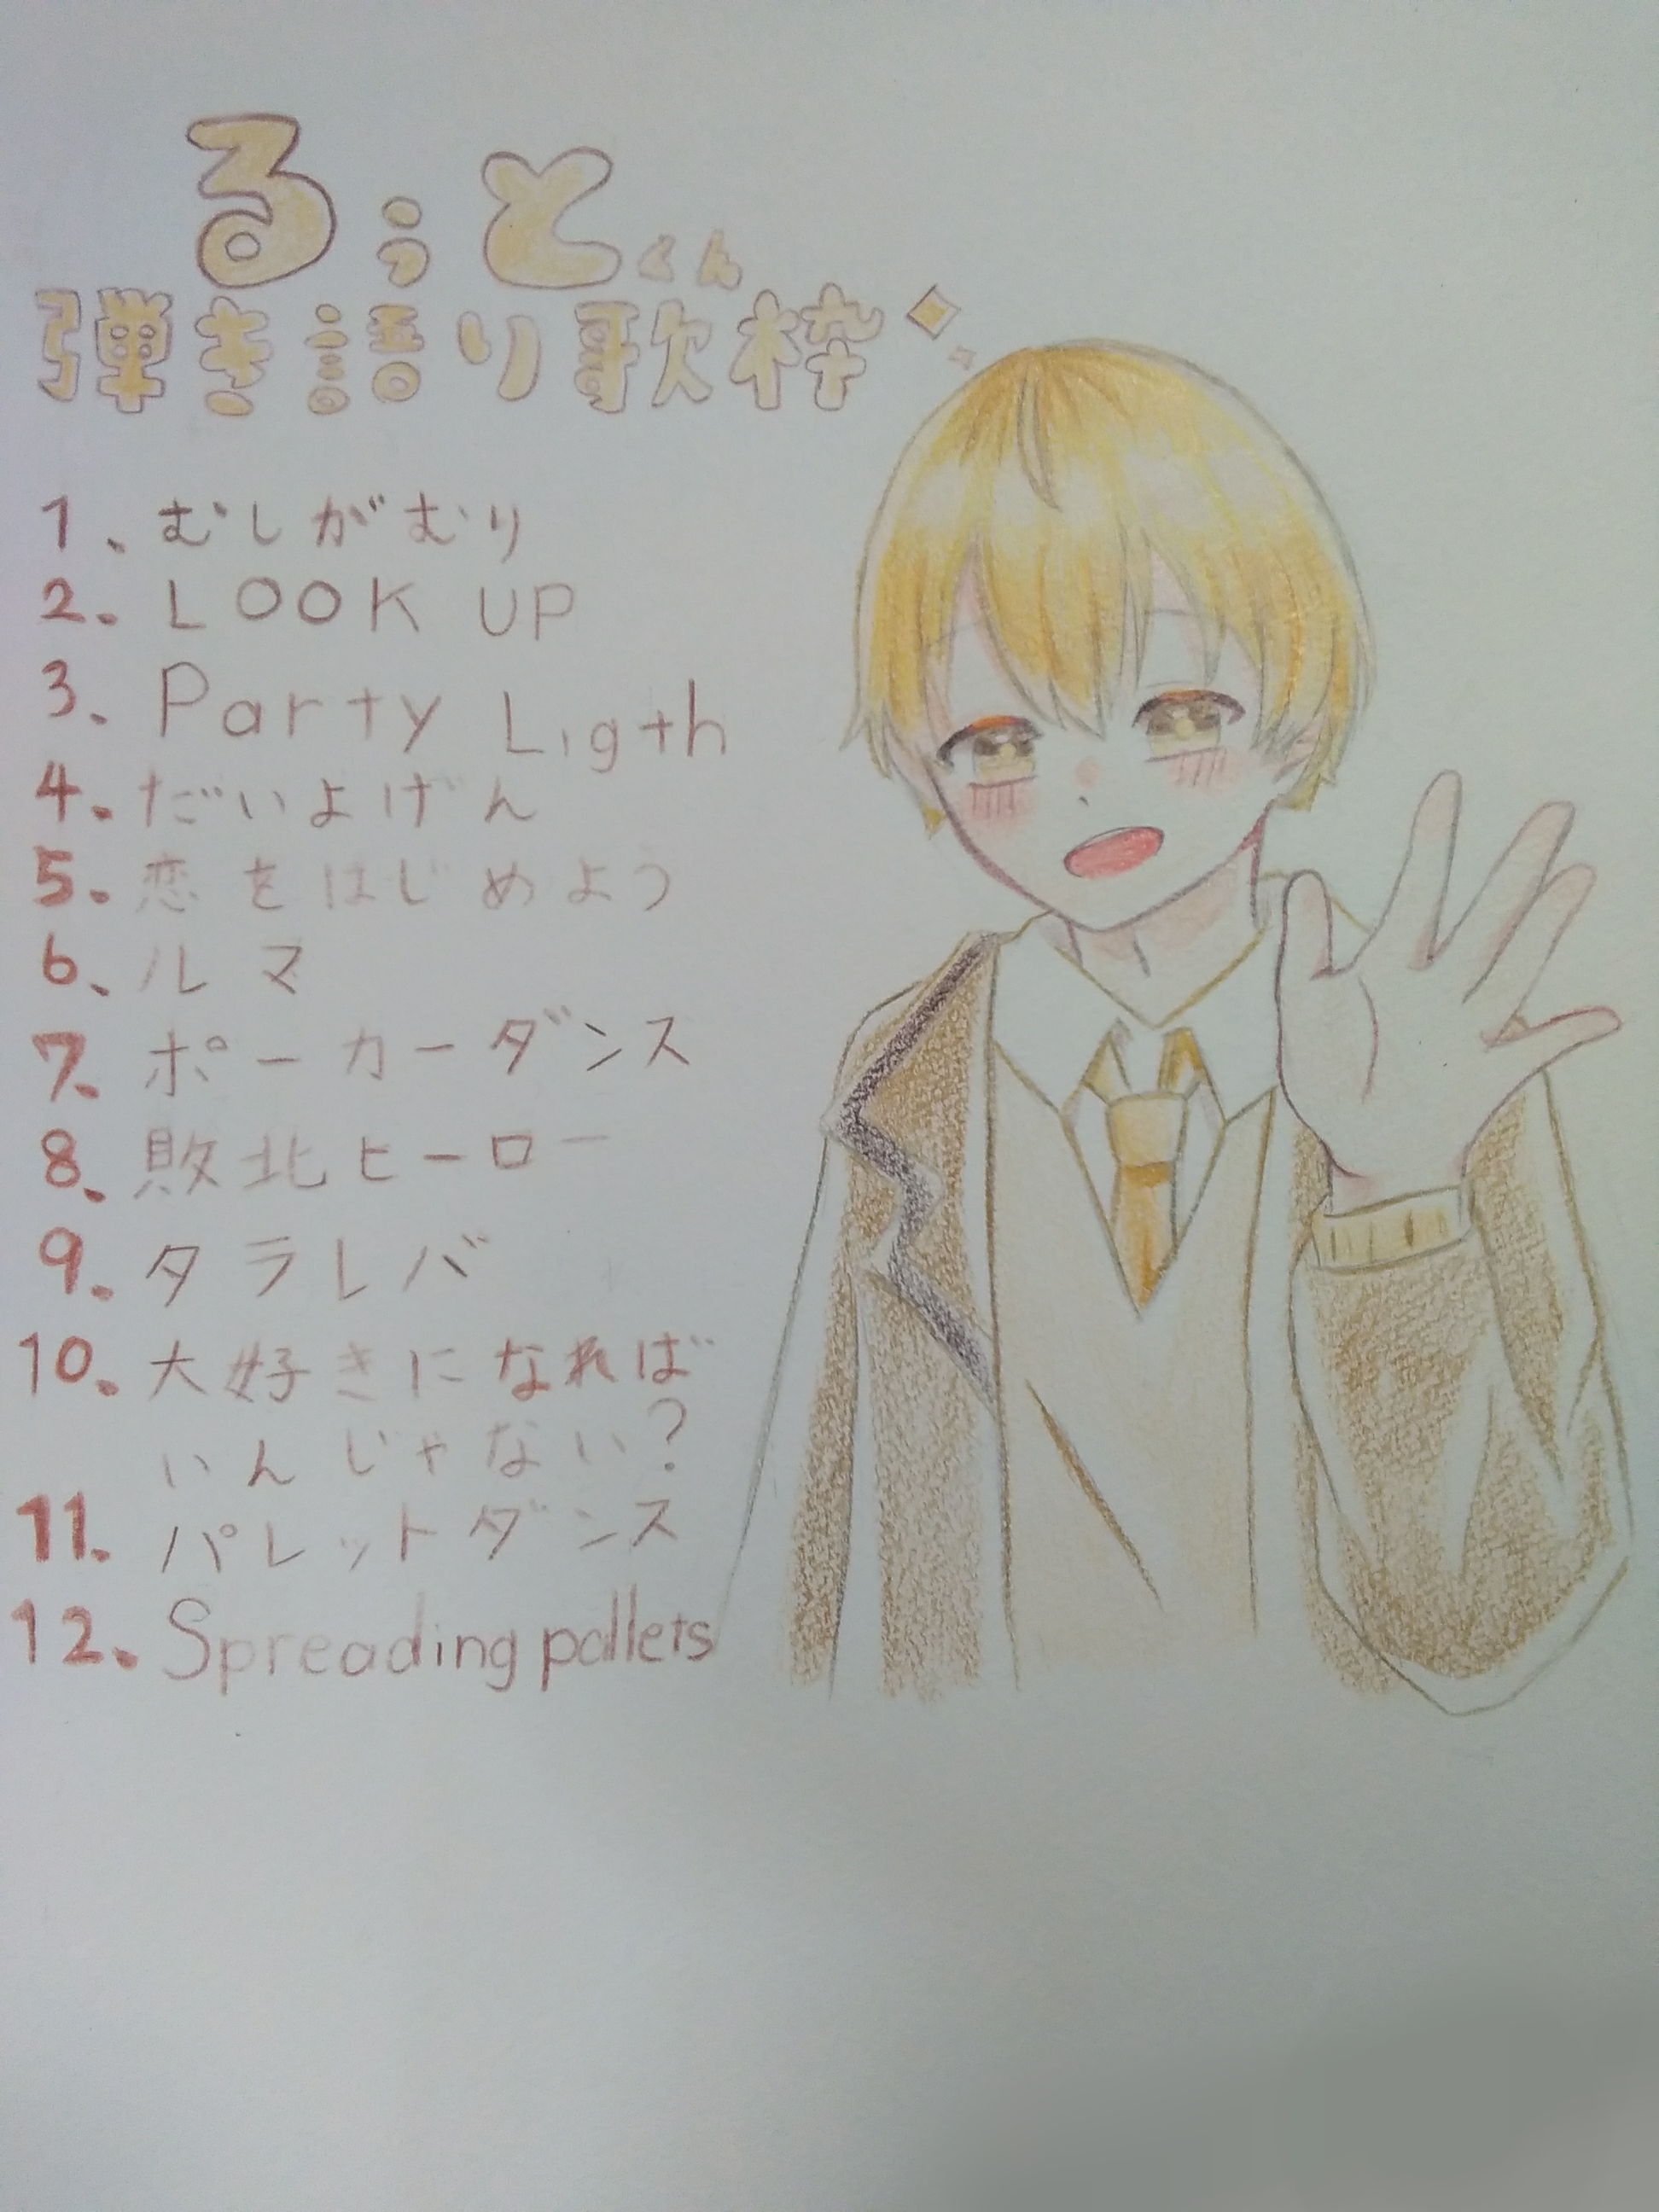 るぅとくん
弾き語り歌枠
1、むしがむり
2. LOOK UP
3. Party Ligth
4. だいよげん
5. 恋をはじめよう
6、ルマ
7、ポーカーダンス
8、敗北ヒーロー
9、タラレバ
10. 大好きになれば
いんじゃない?
11. パレットダンス
12. Spreading pallets